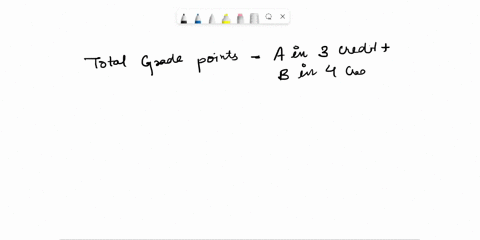 Total Grade points - A in 3 credit +
B in 4 Cre